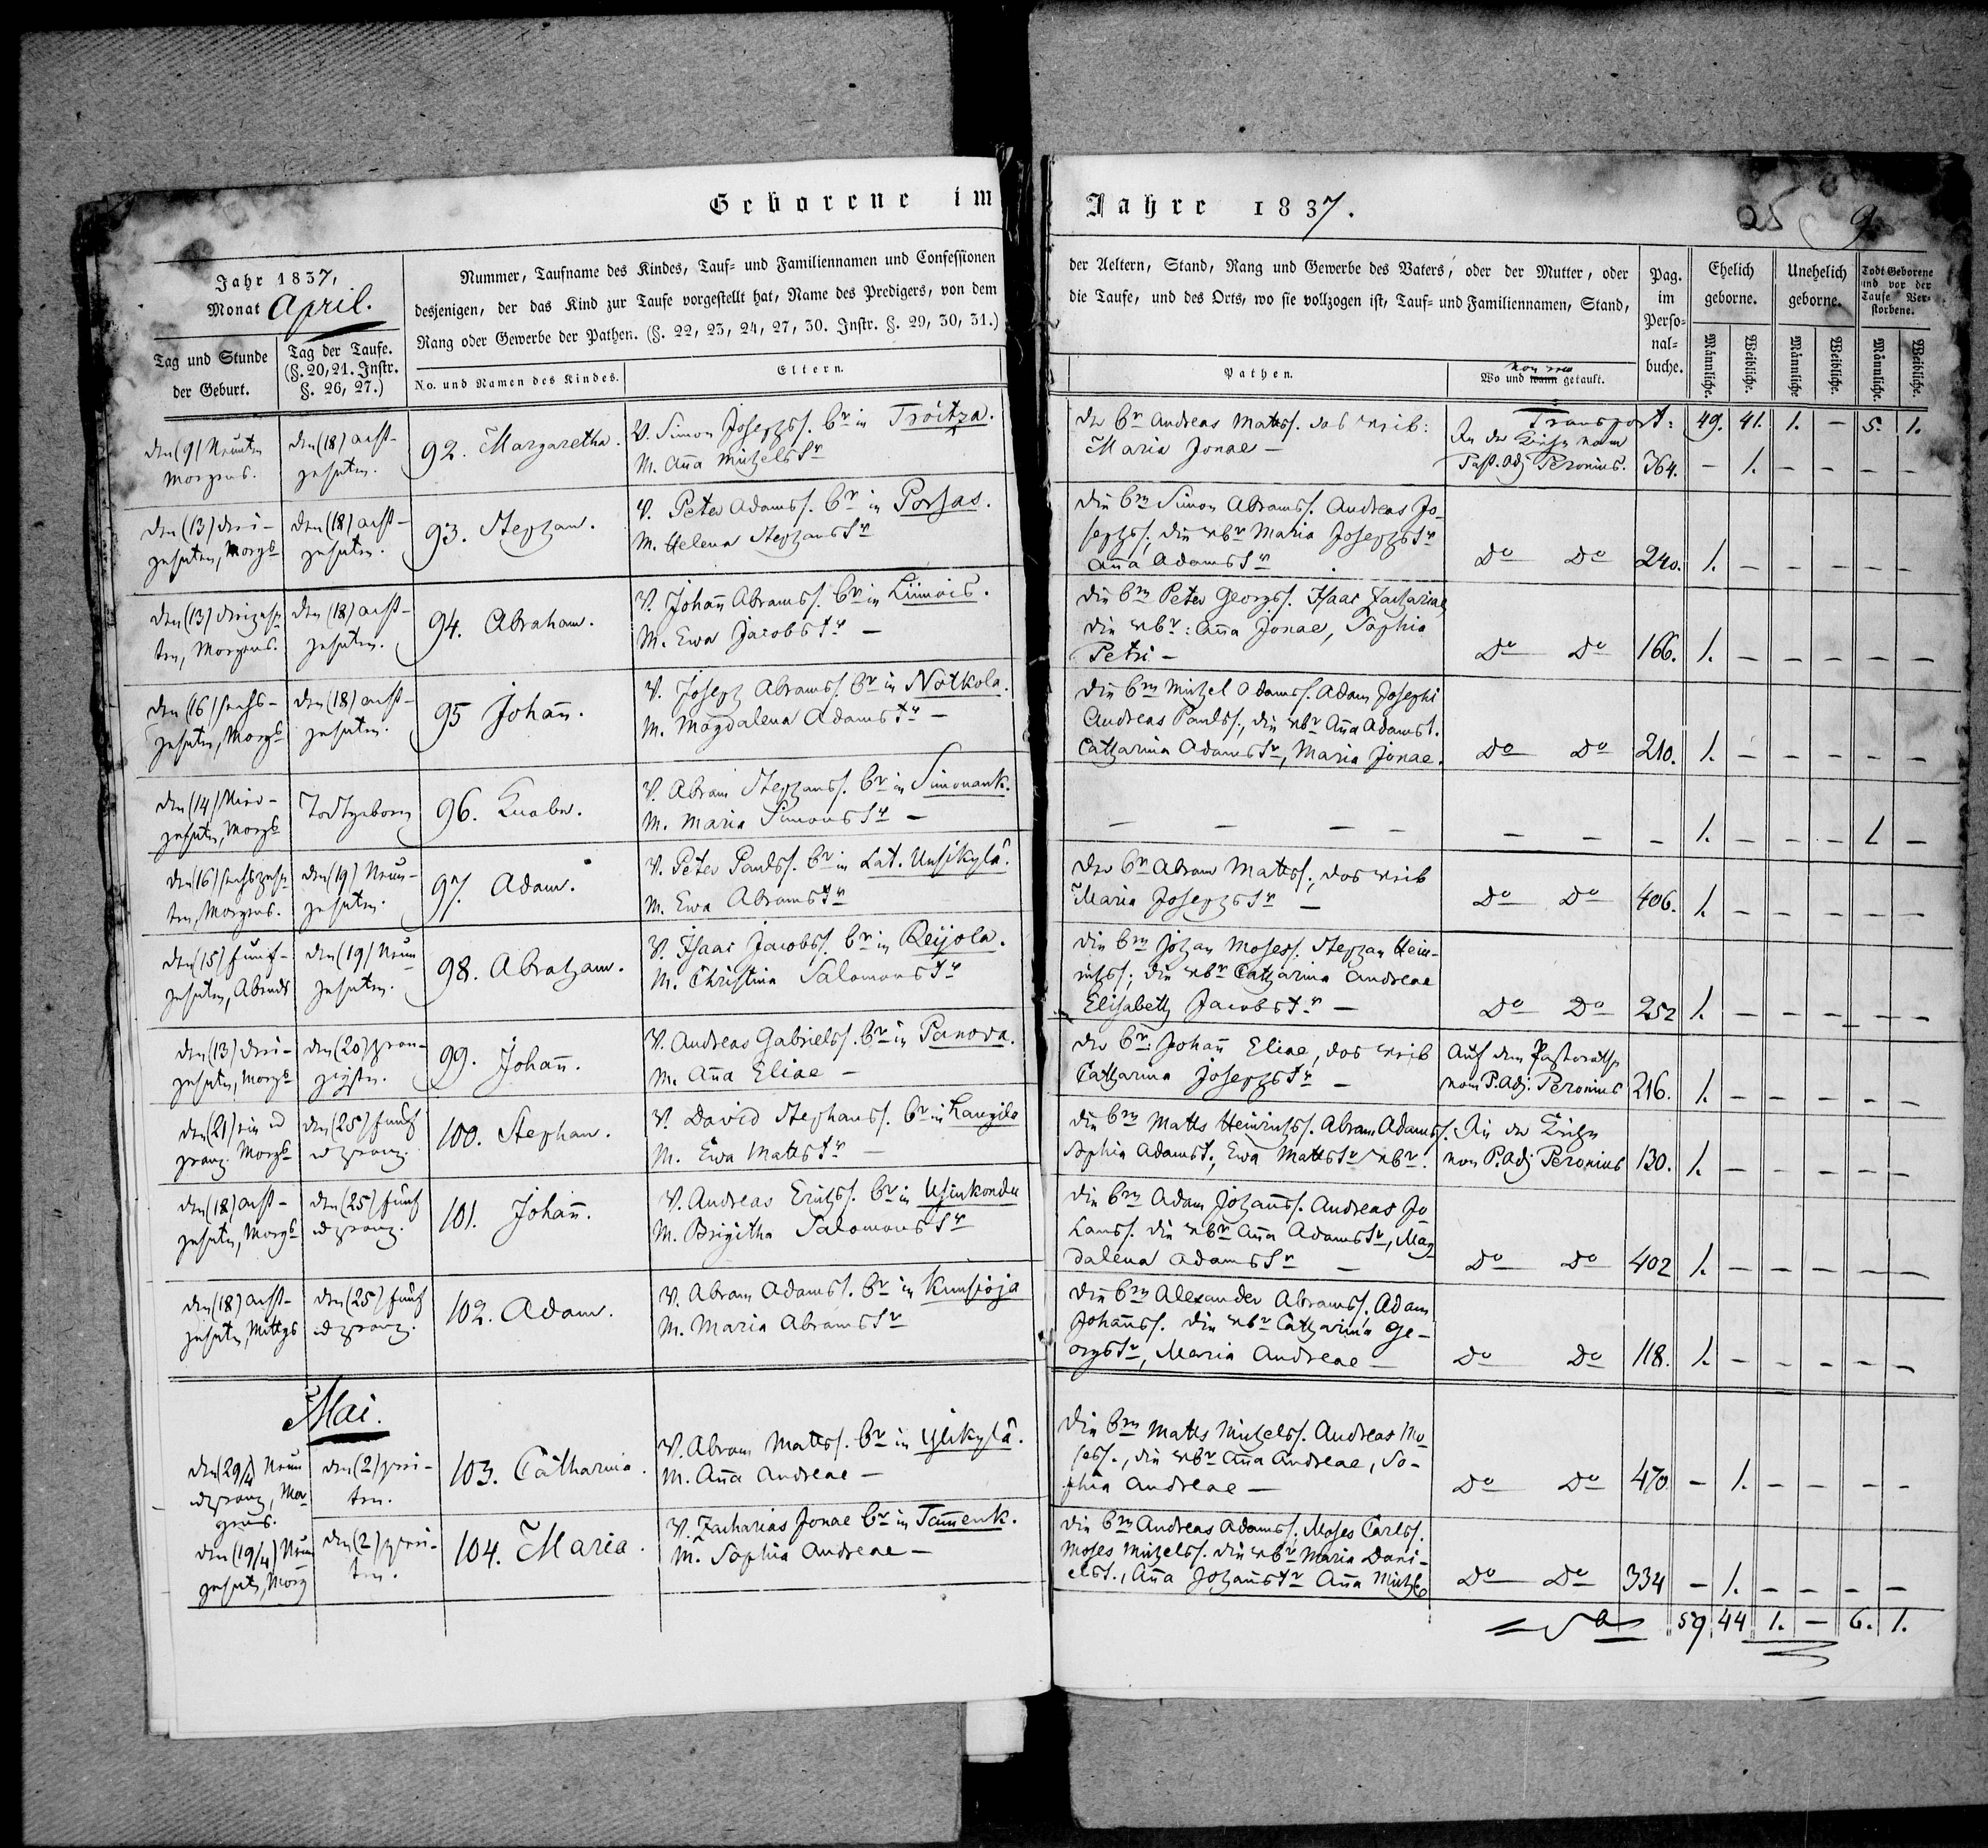 Geborene im Jahre 1837.
25 9.
Jahr 1837,
Monat April.
Tag und Stunde
der Geburt.
Tag der Taufe.
(§. 20, 21. Instr.
§. 26, 27.)
Nummer, Taufname des Kindes, Tauf- und Familiennamen und Confessionen
desjenigen, der das Kind zur Taufe vorgestellt hat, Name des Predigers, von dem
Rang oder Gewerbe der Pathen. (§. 22, 23, 24, 27, 30. Instr. §. 29, 30, 31.)
No. und Namen des Kindes.
Eltern.
der Aeltern, Stand, Rang und Gewerbe des Vaters, oder der Mutter, oder
die Taufe, und des Orts, wo sie vollzogen ist, Tauf- und Familiennamen, Stand,
Pathen.
von wem
Wo und wann getauft.
Pag.
im
Perso-
nal-
buche.
Ehelich
geborne.
Unehelich
geborne.
Todt Geborene
und vor der
Taufe Ver-
storbene.
Männliche.
Weibliche.
Männliche
Weibliche.
Männliche.
Weibliche.
Transport: 49. 41. 1. – 5. 1.
den (9) Neunten
Morgens.
den (18) acht-
zehnten.
92. Margaretha.
V. Simon Josephs. br in Troitza.
M. Anna Michels tr
der br Andreas Matts. das Weib:
Maria Jonae –
In der Kirche vom
Past. Adj Peronius. 364. – 1. – – – –
den (13) drei-
zehnten, Morgs
den (18) acht-
zehnten.
93. Stephan.
V. Peter Adams. br in Porjas.
M. Helena Stephans tr
die brn Simon Abrams. Andreas Jo-
sephs; die Wbr Maria Josephs tr
Anna Adams tr
Do Do 240. 1. – – – – –
den (13) dreizehn-
ten, Morgens.
den (18) acht-
zehnten.
94. Abraham.
V. Johann Abrams. br in Liimois.
M. Ewa Jacobs tr –
die brn Peter Georgs. Isaac Zachariae,
die Wbr: Anna Jonae, Sophia
Petri –
Do Do 166. 1. – – – – –
den (16) sechs-
zehnten, Morgs
den (18) acht-
zehnten.
95 Johann.
V. Joseph Abrams. br in Notkola.
M. Magdalena Adams tr –
die brn Michel Adams. Adam Josephi
Andreas Pauls., die Wbr Anna Adams t.
Catharina Adams tr, Maria Jonae.
Do Do 210. 1. – – – – –
den (14) Vier-
zehnten, Morgs
Todtgeboren
96. Knabe.
V. Abram Stephans. br in Simonank.
M. Maria Simons tr –
– – – – – – – 1. – – – 1. –
den (16) sechszehn-
ten, Morgens.
den (19) Neun-
zehnten.
97. Adam.
V. Peter Pauls. br in Lat. Uusikylä.
M. Ewa Abrams tr
der br Abram Matts., das Weib
Maria Josephs tr –
Do Do 406. 1. – – – – –
den (15) fünf-
zehnten, Abends
den (19) Neun
zehnten.
98. Abraham.
V. Isaac Jacobs. br in Reijola.
M. Christina Salomons tr
die brn Johan Moses. Stephan Hein-
richs; die Wbr Catharina Andreae
Elisabeth Jacobs tr –
Do Do 252 1. – – – – –
den (13) drei-
zehnten, Morgs
den (20) zwan-
zigsten.
99. Johann.
V. Andreas Gabriels. br in Panova.
M. Anna Eliae –
der br: Johann Eliae, das Weib
Catharina Josephs tr –
Auf dem Pastorathe
vom P. Adj. Peronius 216. 1. – – – – –
den (21) ein ud
zwanz. Morgs
den (25) fünf
ud zwanz.
100. Stephan.
V. David Stephans. br in Kangila
M. Ewa Matts tr –
die brn Matts Heinrichs. Abram Adams.
Sophia Adams t., Ewa Matts tr Wbr.
In der Kirche
von P. Adj Peronius 130. 1. – – – – –
den (18) acht-
zehnten, Morgs
den (25) fünf
ud zwanz.
101. Johann.
V. Andreas Erichs. br in
M. Brigitha Salomons tr
die brn Adam Johanns. Andreas Jo
hanns. die Wbr Anna Adams tr, Mag
dalena Adams tr –
Do Do 402 1. – – – – –
den (18) acht-
zehnten, Mittgs
den (25) fünf
ud zwanz.
102. Adam.
V. Abram Adams. br in Kunsioja
M. Maria Abrams tr
die brn Alexander Abrams. Adam
Johanns. die Wbr Catharina Ge-
orgs tr, Maria Andreae –
Do Do 118. 1. – – – – –
Mai.
den (29/4) Neun
ud zwanz, Mor
gens.
den (2) zwei-
ten.
103. Catharina.
V. Abram Matts. br in Ylikylä.
M. Anna Andreae –
die brn Matts Michels. Andreas Mo
ses., die Wbr Anna Andreae, So-
phia Andreae –
Do Do 470. – 1. – – – –
den (19/4) Neun
zehnt, Morg
den (2) zwei-
ten.
104. Maria.
V. Zacharias Jonae br in Tammenk.
M. Sophia Andreae –
die brn Andreas Adams; Moses Carls.
Moses Michels. die Wbr Maria Dani-
els t., Anna Johanns tr Anna Michels
Do Do 334 – 1. – – – –
59 44 1. – 6. 1.